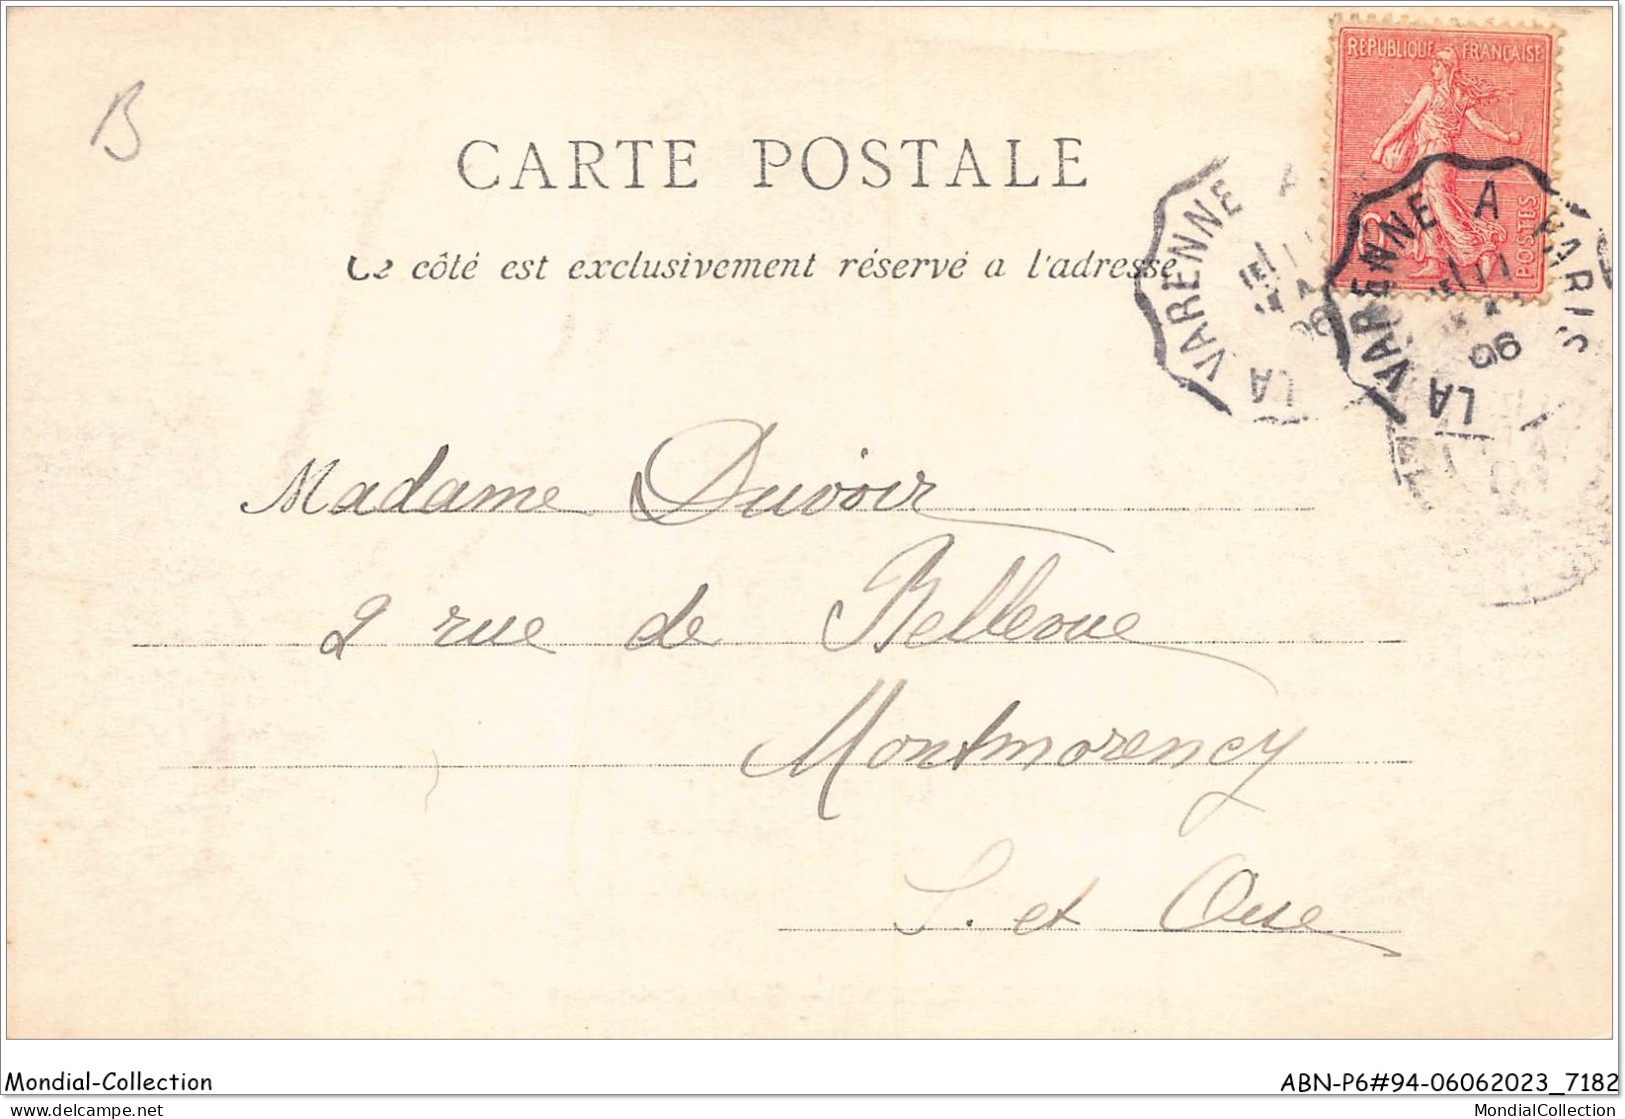 B
CARTE POSTALE
Ce côté est exclusivement réservé a l'adresse
REPUBLIQUE FRANÇAISE
POSTES
LA VARENNE A
LA VARENNE A PARIS
Madame Duvoir
2 rue de Bellevue
Montmorency
S. et Oise
Mondial-Collection
ABN-P6#94-06062023_7182
www.delcampe.net
MondialCollection